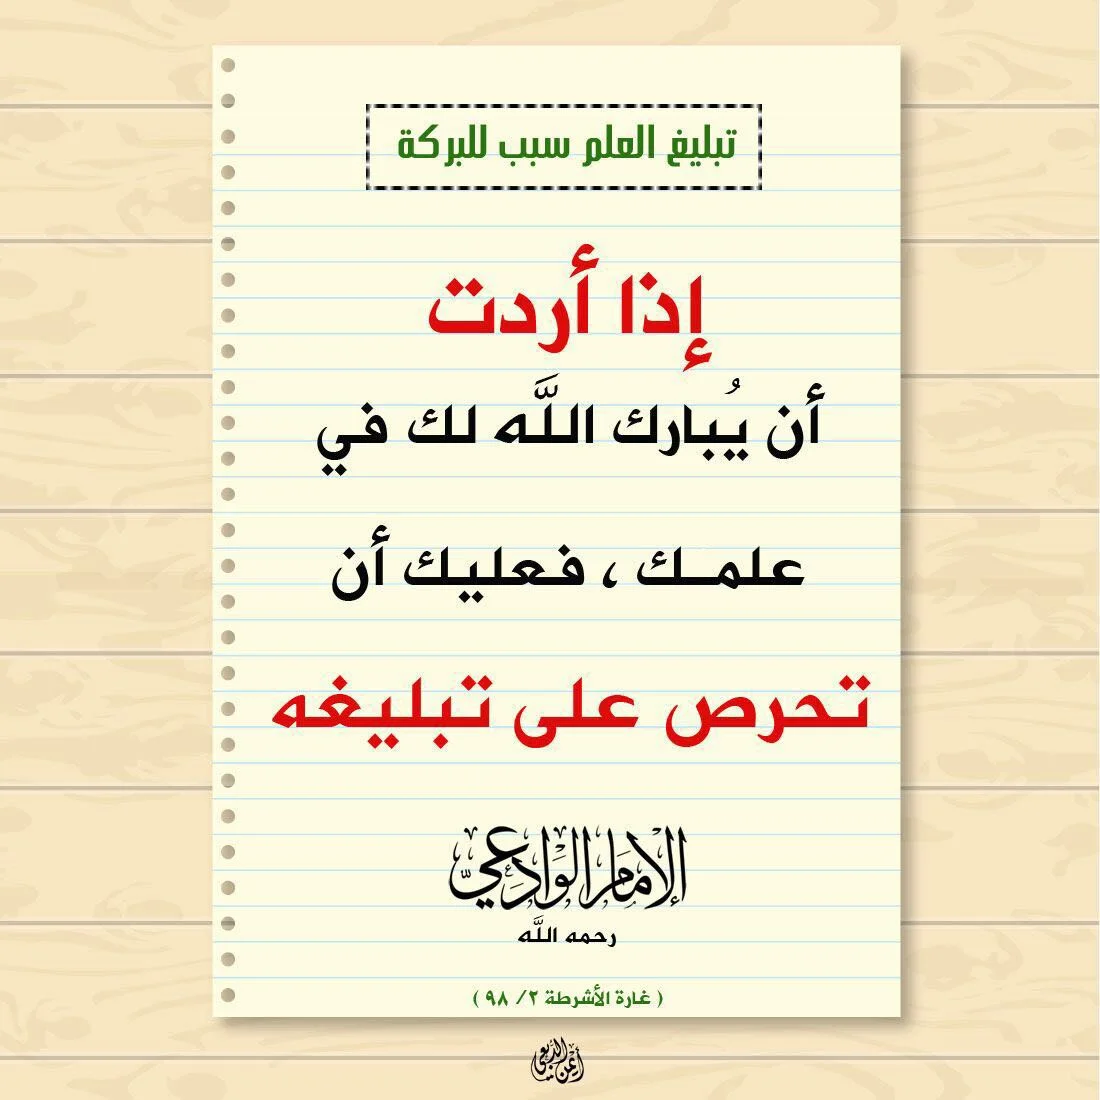 تبليغ العلم سبب للبركة
إذا أردت
أن يُبارك اللَّه لك في
علمـك ، فعليك أن
تحرص على تبليغه
الإمام الوادعي
رحمه اللَّه
( غارة الأشرطة ٢/ ٩٨ )